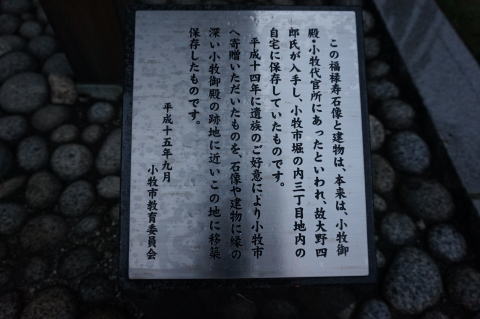 この福禄寿石像と建物は、本来は、小牧御
殿・小牧代官所にあったといわれ、故大野四
郎氏が入手し、小牧市堀の内三丁目地内の
自宅に保存していたものです。
平成十四年に遺族のご好意により小牧市
へ寄贈いただいたものを、石像や建物に縁の
深い小牧御殿の跡地に近いこの地に移築
保存したものです。
平成十五年九月
小牧市教育委員会